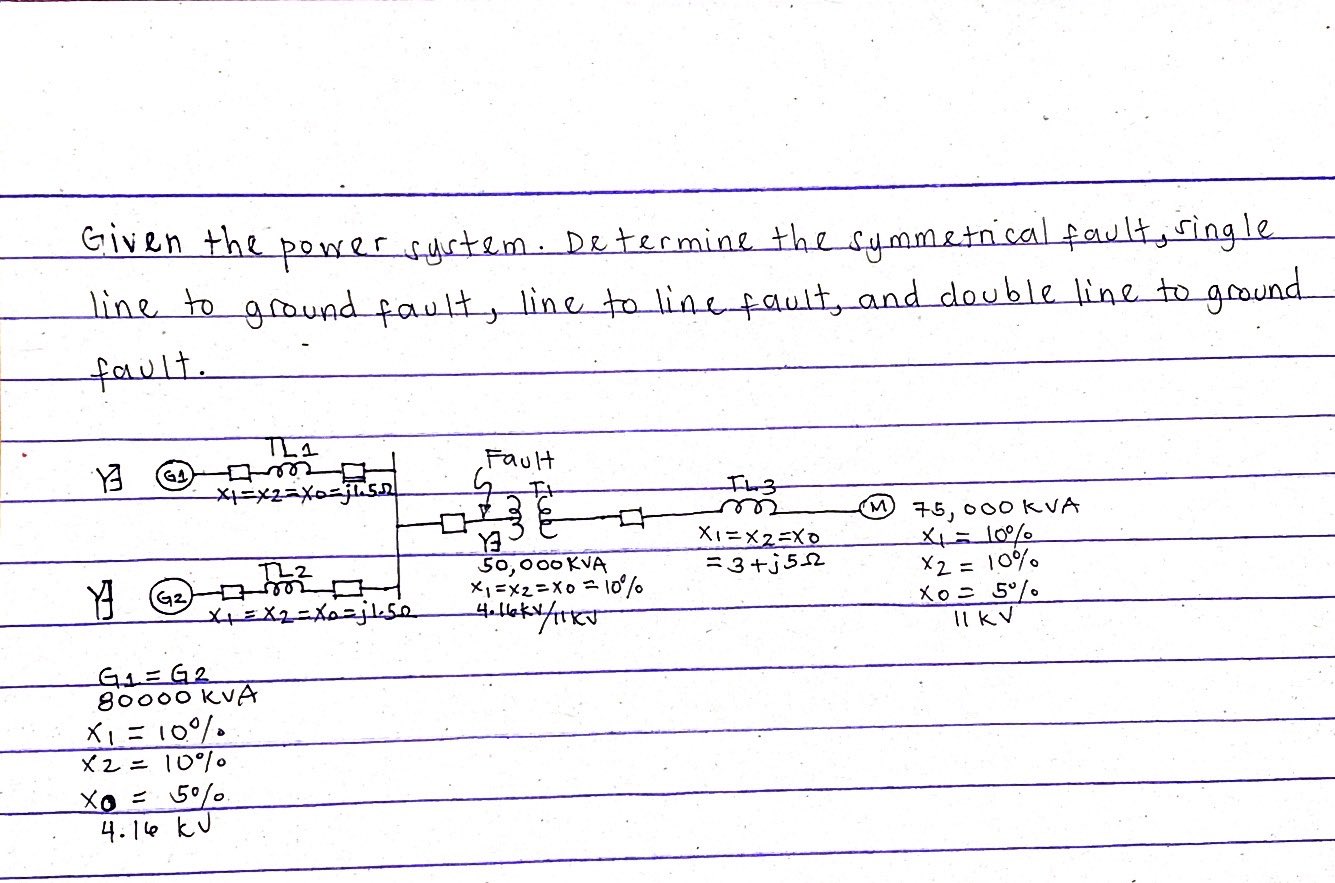 Given the power system. Determine the symmetrical fault, single
line to ground fault, line to line fault, and double line to ground
fault.
TL1
G1
X1=X2=X0=j1.5Ω
Fault
T1
TL3
M
75,000 KVA
X1=X2=X0
=3+j5Ω
X1 = 10%
X2 = 10%
X0 = 5%
11 KV
50,000KVA
X1=X2=X0=10%
4.16KV/11KV
TL2
G2
X1=X2=X0=j1.5Ω
G1=G2
80000 KVA
X1 = 10%
X2 = 10%
X0 = 5%
4.16 KV